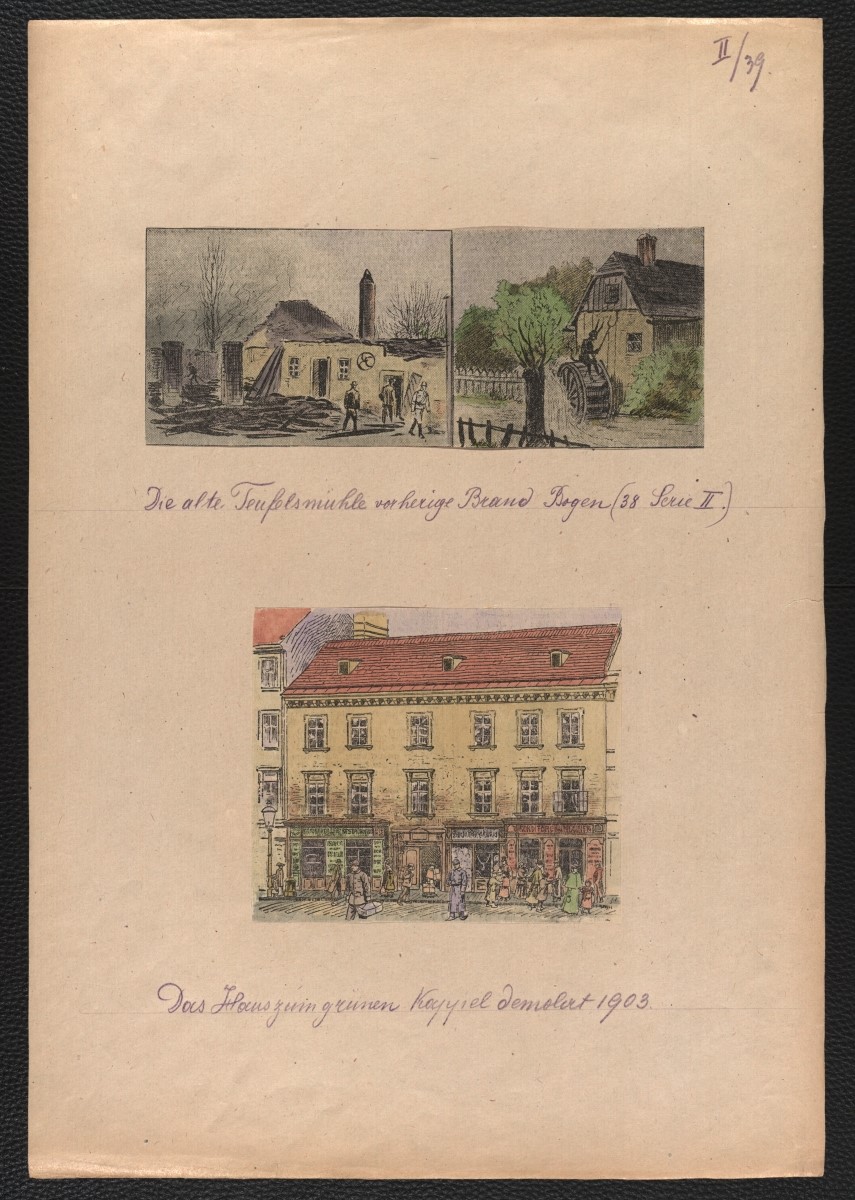 II/39.
Die alte Teufelsmühle vorherige Brand Bogen (38 Serie II.)
Das Haus zum grünen Kappel demoliert 1903.